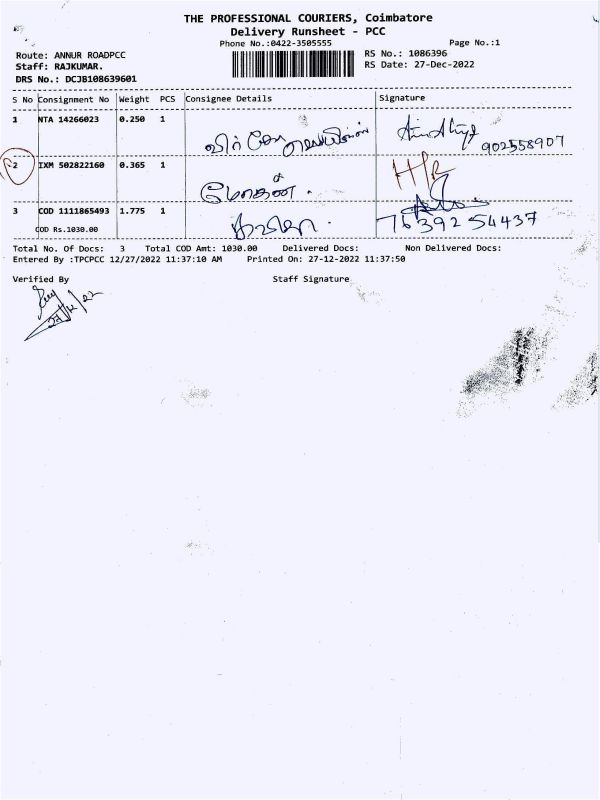 THE PROFESSIONAL COURIERS, Coimbatore
Delivery Runsheet - PCC
Phone No.:0422-3505555 Page No.:1
Route: ANNUR ROADPCC RS No.: 1086396
Staff: RAJKUMAR. RS Date: 27-Dec-2022
DRS No.: DCJB108639601
S No Consignment No Weight PCS Consignee Details Signature
1 NTA 14266023 0.250 1
902558907
2 IXM 502822160 0.365 1
3 COD 1111865493 1.775 1
7639254437
COD Rs.1030.00
Total No. Of Docs: 3 Total COD Amt: 1030.00 Delivered Docs: Non Delivered Docs:
Entered By :TPCPCC 12/27/2022 11:37:10 AM Printed On: 27-12-2022 11:37:50
Verified By Staff Signature